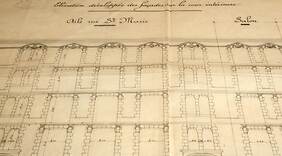 Elévation développée des façades sur la cour intérieure
Aile rue Ste Marie
Salon